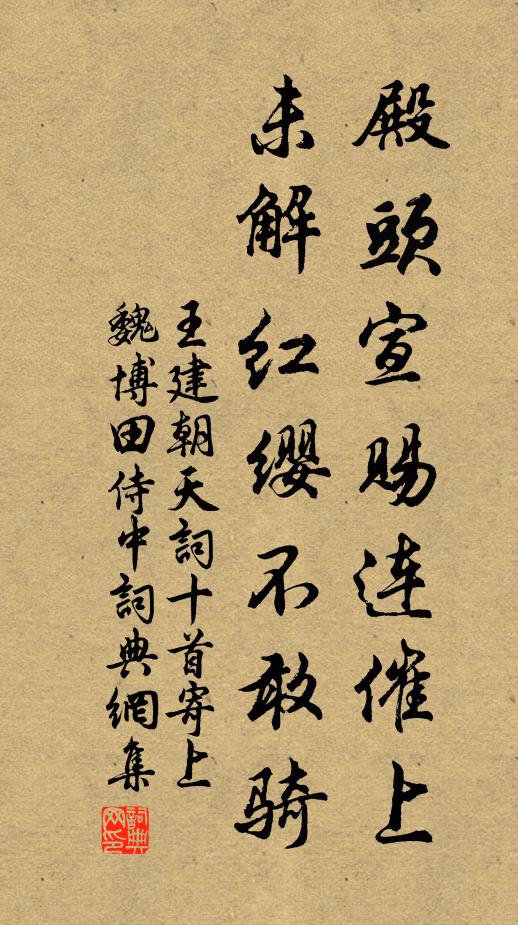 殿頭宣賜連催上
未解红缨不敢骑
王建朝天詞十首寄上
魏博田侍中詞典網集
詞典网印